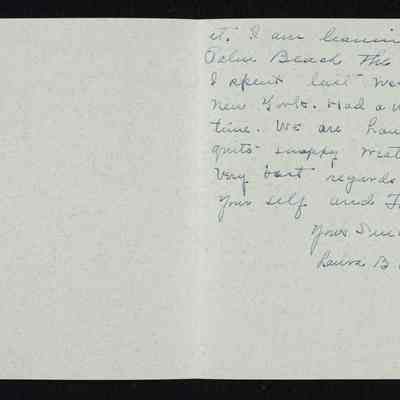 it. I am leavin
Palm Beach the
I spent last we
New York. Had a w
time. We are hav
quite snappy weat
Very best regards
your self and F
Yours Sinc
Laura B.